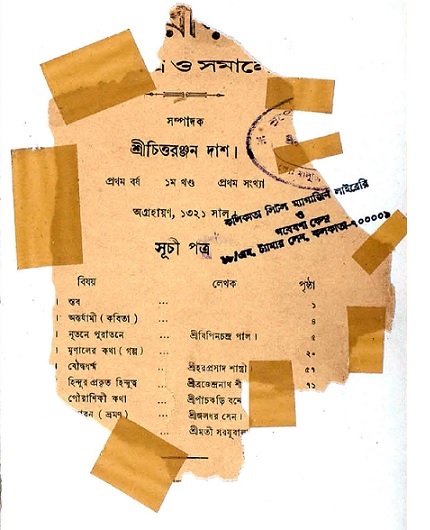 ও সমালো
সম্পাদক
শ্রীচিত্তরঞ্জন দাশ।
প্রথম বর্ষ ১ম খণ্ড প্রথম সংখ্যা
অগ্রহায়ণ, ১৩২১ সাল
কলিকাতা লিটল ম্যাগাজিন লাইব্রেরি
ও
গবেষণা কেন্দ্র
১৮/এম, ট্যামার লেন, কলকাতা-৭০০০০৯
সূচী পত্র
বিষয় লেখক পৃষ্ঠা
। স্তব ... ১
। অন্তর্যামী (কবিতা) ... ৪
। নূতনে পুরাতনে ... শ্রীবিপিনচন্দ্র পাল। ৫
। মৃণালের কথা (গল্প) ... ২০
। বৌদ্ধধর্ম্ম ... শ্রীহরপ্রসাদ শাস্ত্রী। ৫৭
হিন্দুর প্রকৃত হিন্দুত্ব ... শ্রীব্রজেন্দ্রনাথ শী ৭১
পৌরাণিকী কথা ... শ্রীপাঁচকড়ি বন্দ্যো
(ভ্রমণ) ... শ্রীজলধর সেন।
... শ্রীমতী সরযূবালা